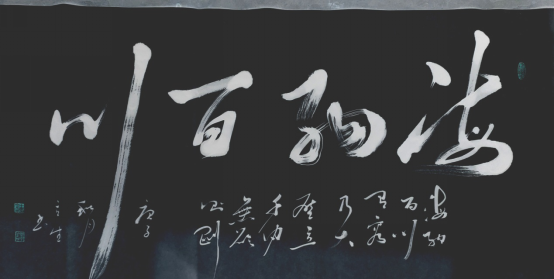 海纳百川
海纳
百川
有容
乃大
壁立
千仞
無欲
则刚
庚子
秋月
书